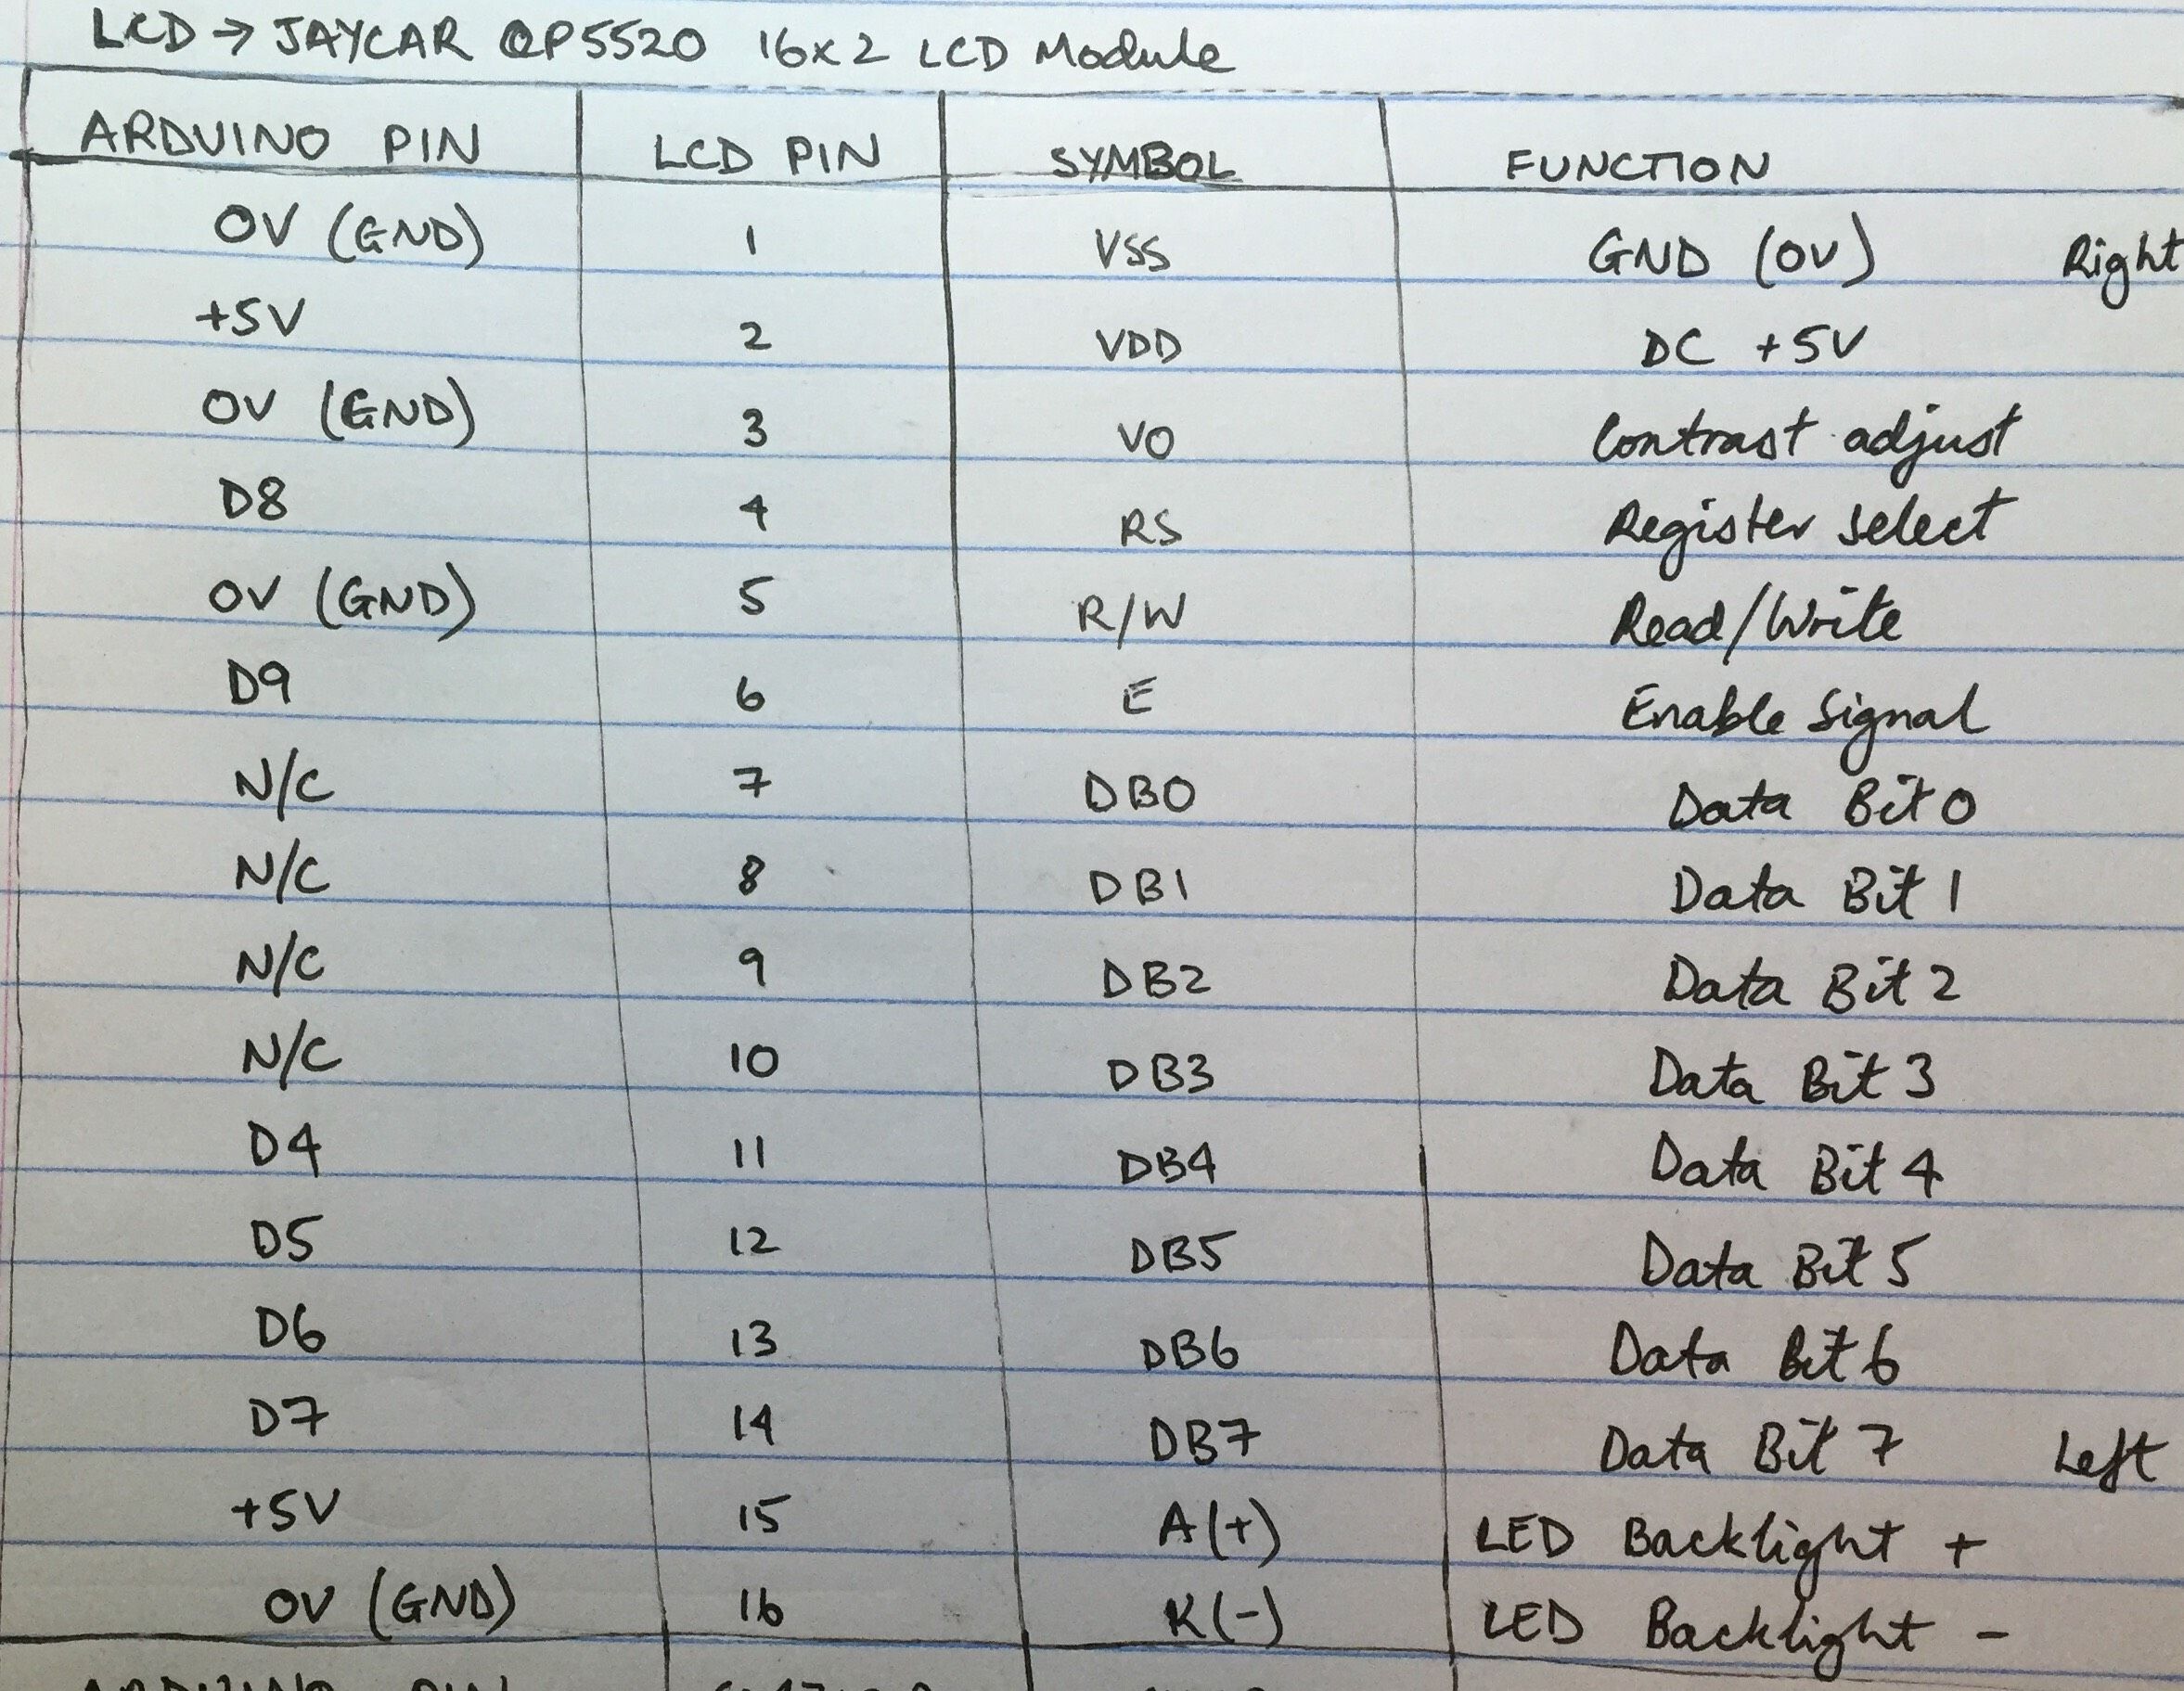 LCD → JAYCAR QP5520 16x2 LCD Module
ARDUINO PIN LCD PIN SYMBOL FUNCTION
0V (GND) 1 VSS GND (0V) Right
+5V 2 VDD DC +5V
0V (GND) 3 VO Contrast adjust
D8 4 RS Register Select
0V (GND) 5 R/W Read/Write
D9 6 E Enable Signal
N/C 7 DB0 Data Bit 0
N/C 8 DB1 Data Bit 1
N/C 9 DB2 Data Bit 2
N/C 10 DB3 Data Bit 3
D4 11 DB4 Data Bit 4
D5 12 DB5 Data Bit 5
D6 13 DB6 Data Bit 6
D7 14 DB7 Data Bit 7 Left
+5V 15 A(+) LED Backlight +
0V (GND) 16 K(-) LED Backlight -
ARDUINO PIN